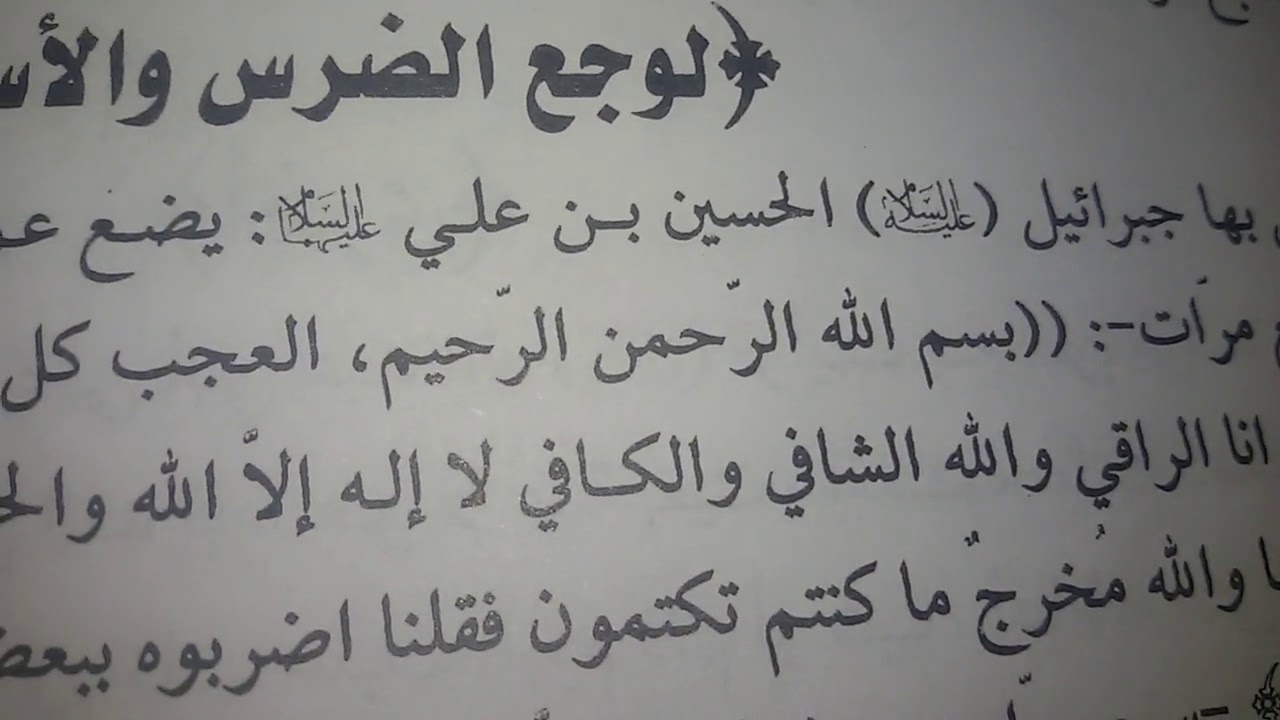 ﴿لوجع الضرس والأس
بها جبرائيل (عليه السلام) الحسين بـن علـي عليهما السلام: يضـع عـ
مرات-: ((بسم الله الرّحمن الرّحيم، العجب كل
انا الراقي والله الشافي والكـافي لا إلـه إلاّ الله والح
ا والله مُخرجٌ ما كنتم تكتمون فقلنا اضربوه ببعض